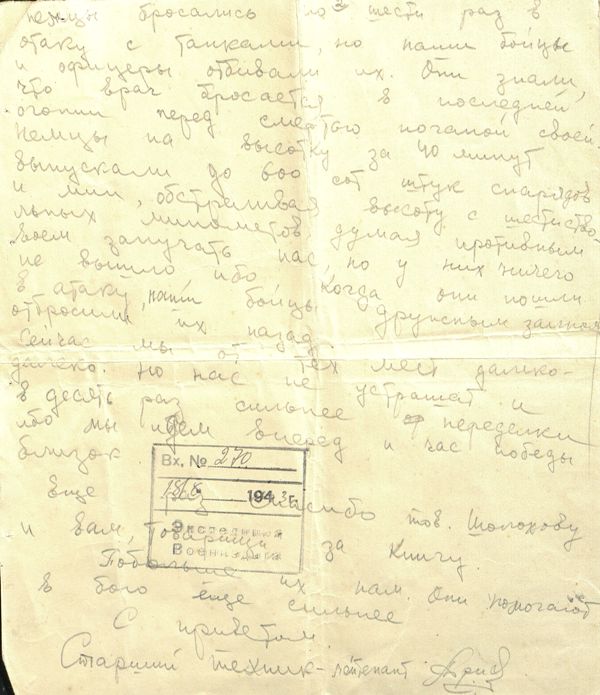 немцы бросались по шести раз в
атаку с танками, но наши бойцы
и офицеры отбивали их. Они знали,
что враг бросается в последней
агонии перед смертью почагой своей.
Немцы на высотку за 40 минут
выпускали до 600 сот штук снарядов
и мин, обстреливая высоту с шестиство-
льных минометов думая противным
воем запугать нас но у них ничего
не вышло ибо когда они пошли
в атаку, наши бойцы дружным залпом
отбросили их назад.
Сейчас мы от тех мест далико-
далеко. Но нас не устрашат и
в десять раз сильнее переделки
ибо мы идем вперед и час победы
близок
Вх. № 270
18/8 1943 г.
Экспедиция
Воениздата
Еще раз спасибо тов. Шолохову
и вам, товарищи за книгу.
Побольше их нам. Они помогают
в бою еще сильнее
С приветом
Старший техник-лейтенант